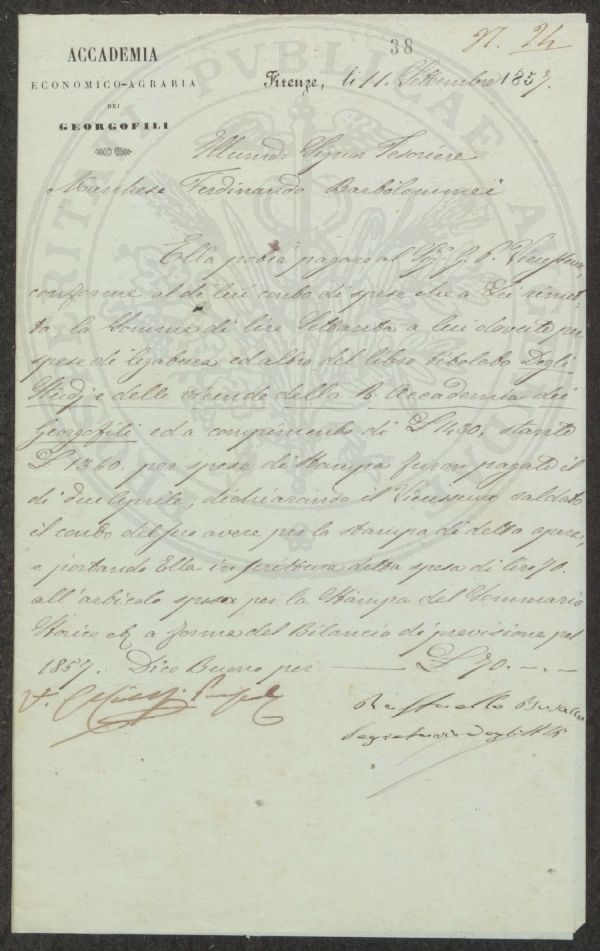 38
N. 24
ACCADEMIA
ECONOMICO-AGRARIA
DEI
GEORGOFILI
Firenze, li 11. Settembre 1857.
Signor Tesoriere
Marchese Ferdinando Bartolommei
Ella potrà pagare al Sig. G. P. Vieusseux,
conforme al di lui conto di spese che a Lei rimet-
to, la Somma di lire Settanta a lui dovute per
spese di legatura ed altro del libro titolato Degli
Studj e delle vicende della R. Accademia dei
Georgofili ed a compimento di £ 1430, stante
£ 1360. per spese di stampa furon pagate il
dì due Aprile, dichiarando il Vieusseux saldato
il conto del suo avere per la stampa di detta opera,
e portando Ella in scrittura detta spesa di lire 70.
all'articolo spesa per la Stampa del Sommario
Storico a forma del Bilancio di previsione pel
1857. Dico Buono per — £ 70. -. -.
V.
Raffaello
Segretario degli Atti